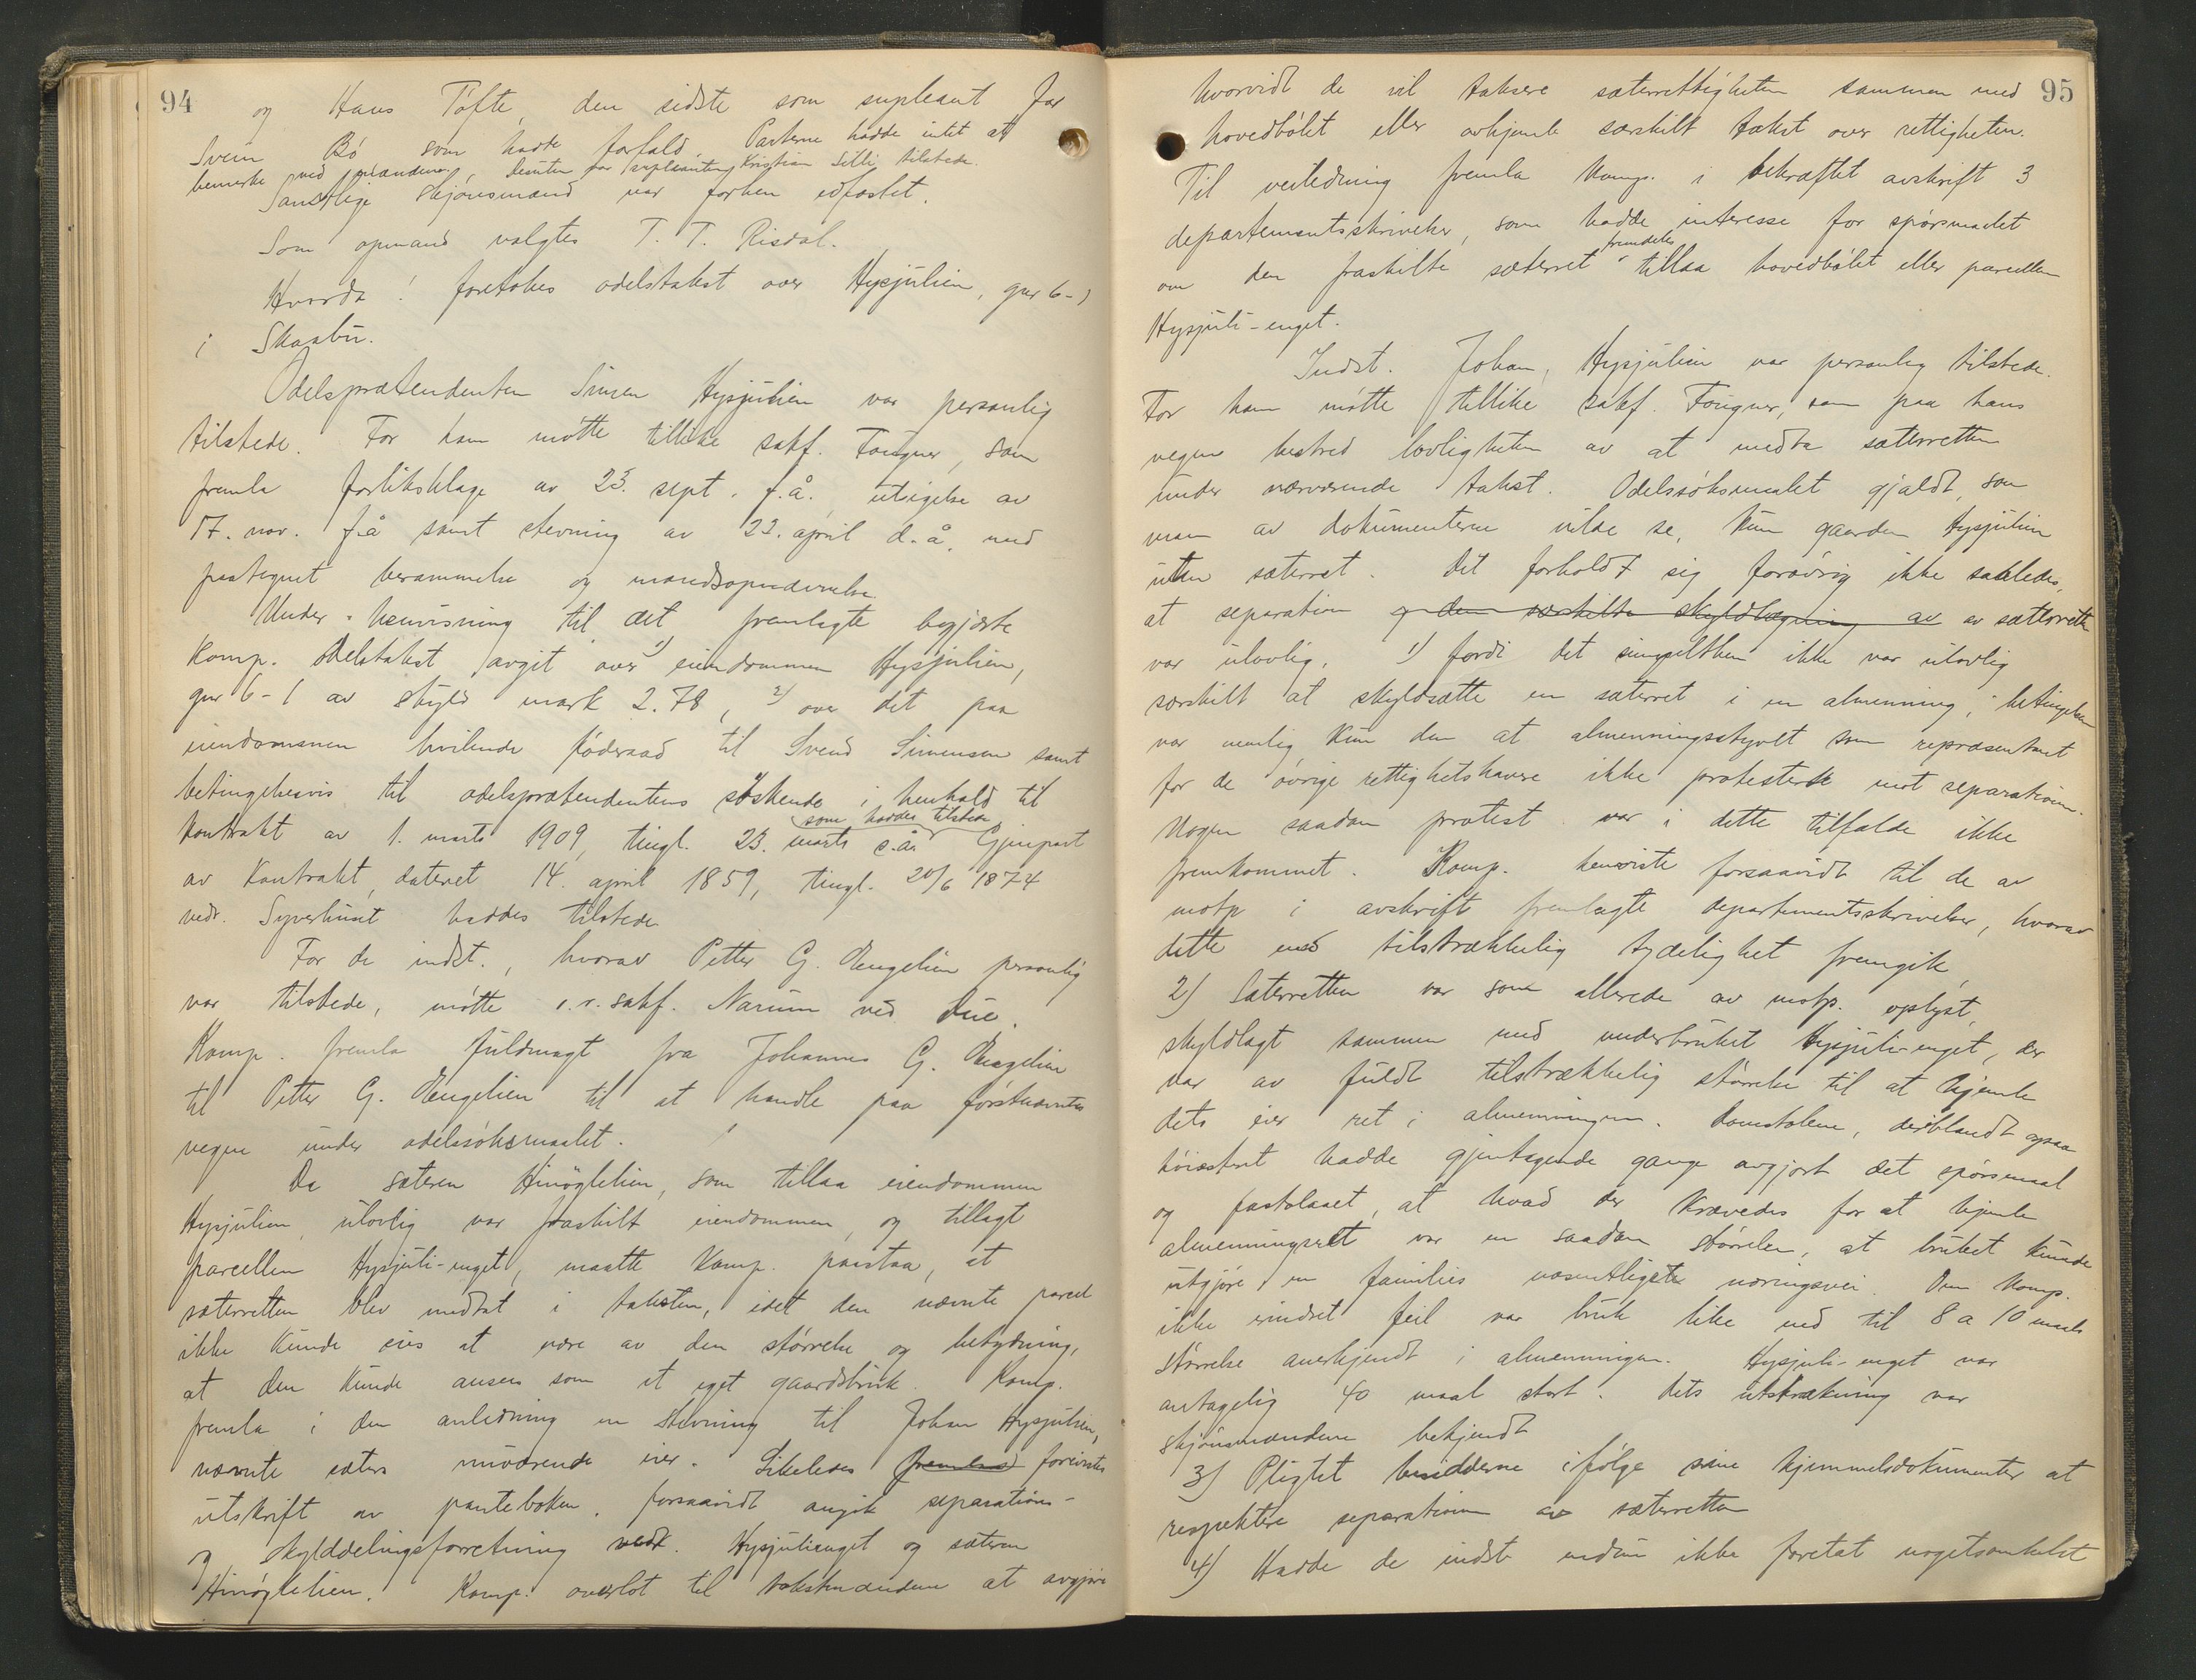 94
og Hans Tofte, den sidste som supleant for
Svein Bø som hadde forfald. Parterne hadde intet at
bemerke ved mændene. Desuten var supleanten Kristian Silli tilstede.
Samtlige skjønsmænd var forhen edfæstet.
Som opmand valgtes T. T. Risdal.
Hvorda! foretokes odelstakst over Hysjulien, gnr 6-1
i Skaabu.
Odelsprætendenten Simen Hysjulien var personlig
tilstede. For ham møtte tillike sakf. Fougner, som
fremla forliksklage av 23. sept. f.å. utsigelse av
17. nov. f.å samt stevning av 22. april d.å. med
paategnet berammelse og mandsopnævnelse.
Under henvisning til det fremlagte begjærte
komp. odelstakst avgit over 1) eiendommen Hysjulien,
gnr 6-1 av skyld mark 2.78, 2) over det paa
eiendommen hvilende føderaad til Svend Simensen samt
betingelsesvis til odelsprætendentens søskende i henhold til
kontrakt av 1. marts 1909, tingl. 23. marts s.å. som haddes tilstede Gjenpart
av kontrakt, dateret 14. april 1859, tingl. 20/6 1874
vedr. Syverhuset haddes tilstede
For de indst., hvorav Petter G. Engelien personlig
var tilstede, møtte o.r.sakf. Narum ved Due.
Komp. fremla fuldmagt fra Johannes G. Engelien
til Petter G. Engelien til at handle paa førstnævntes
vegne under odelssøksmaalet.
Da sæteren Hinøglelien, som tillaa eiendommen
Hysjulien, ulovlig var fraskilt eiendommen, og tillagt
parcellen Hysjuli-enget, maatte komp. paastaa, at
sæterretten blev medtat i taksten, idet den nævnte parcel
ikke kunde sies at være av den størrelse og betydning,
at den kunde ansees som et eget gaardsbruk. Komp.
fremla i den anledning en stevning til Johan Hysjulien,
nævnte sæters nuværende eier. Likeledes fremlas foreviste
utskrift av panteboken, forsaavidt angik separations-
og skylddelingsforretning vedk. Hysjulienget og sæteren
Hinøglelien. Komp. overlot til takstmændene at avgjøre
95
hvorvidt de vil taksere sæterrettigheten sammen med
hovedbølet eller avhjemle særskilt takst over rettigheten.
Til veiledning fremla komp. i bekræftet avskrift 3
departementsskrivelser, som hadde interesse for spørsmaalet
om den fraskilte sæterret fremdeles tillaa hovedbølet eller parcellen
Hysjuli-enget.
Indst. Johan Hysjulien var personlig tilstede.
For ham møtte tillike sakf. Fougner, som paa hans
vegne bestred lovligheten av at medta sæterretten
under nærværende takst. Odelssøksmaalet gjaldt, som
man av dokumenterne vilde se, kun gaarden Hysjulien
uten sæterret. Det forholdt sig forøvrig ikke saaledes,
at separation og den særskilte skyldlægning av av sæterretten
var ulovlig. 1) fordi det simpelthen ikke var ulovlig
særskilt at skyldsætte en sæterret i en almenning; betingelsen
var nemlig kun den at almenningsstyret som repræsentant
for de øvrige rettighetshavere ikke protesterte mot separationen.
Nogen saadan protest var i dette tilfælde ikke
fremkommet. Komp. henviste forsaavidt til de av
motp i avskrift fremlagte departementsskrivelser, hvorav
dette med tilstrækkelig tydelighet fremgik.
2) Sæterretten var som allerede av motp. oplyst,
skyldlagt sammen med underbruket Hysjuli-enget, der
var av fuldt tilstrækkelig størrelse til at hjemle
dets eier ret i almenningen. Domstolene, deriblandt ogsaa
høiesteret hadde gjentagende gange avgjort det spørsmaal
og fastslaaet, at hvad der krævedes for at hjemle
almenningsret var en saadan størrelse, at bruket kunde
utgjøre en families væsentligste næringsvei. Om komp.
ikke erindret feil var bruk like ned til 8 a 10 maals
størrelse anerkjendt i almenningen. Hysjuli-enget var
antagelig 40 maal stort. Dets utstrækning var
skjønsmændene bekjendt
3) Pligtet besidderne ifølge sine hjemmelsdokumenter at
respektere separationen av sæterretten
4) Hadde de indst endnu ikke foretat nogetsomhelst